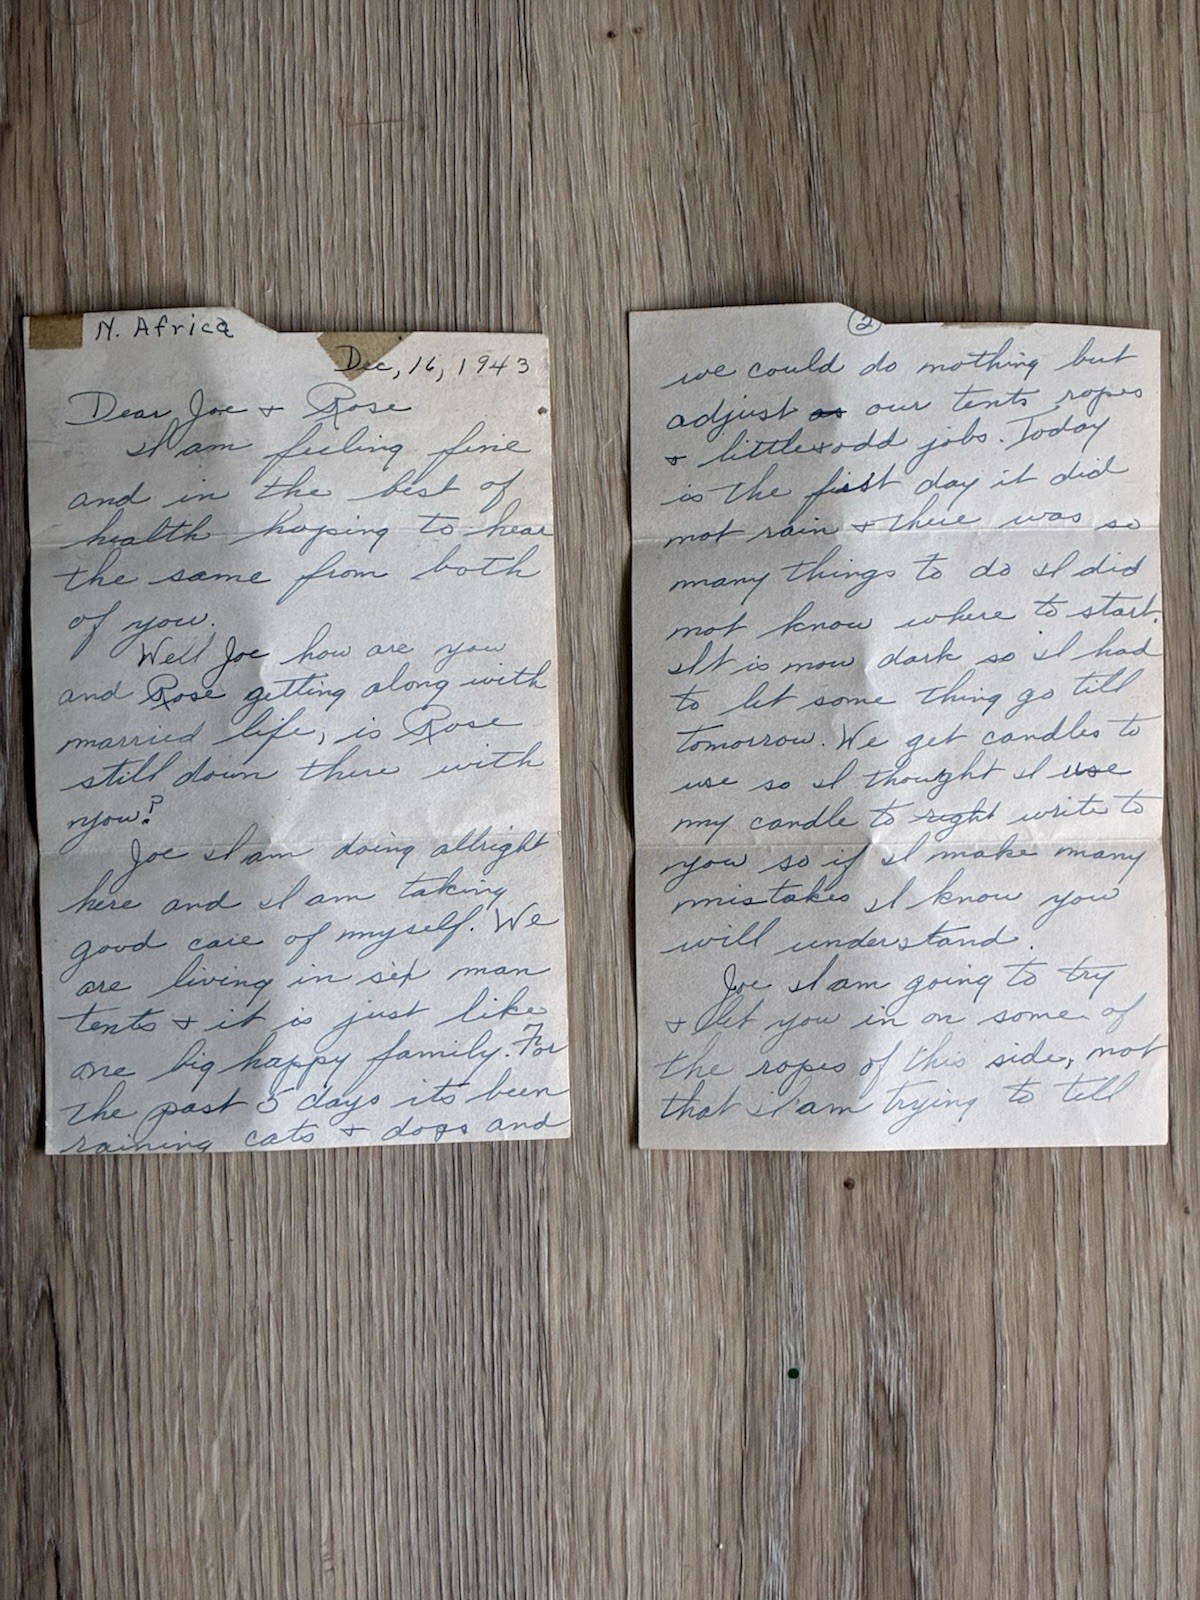 N. Africa
Dec, 16, 1943
Dear Joe + Rose
I am feeling fine
and in the best of
health hoping to hear
the same from both
of you.
Well Joe how are you
and Rose getting along with
married life, is Rose
still down there with
you?
Joe I am doing allright
here and I am taking
good care of myself. We
are living in six man
tents + it is just like
one big happy family. For
the past 5 days its been
raining cats + dogs and
2
we could do nothing but
adjust as our tents ropes
+ little + odd jobs. Today
is the first day it did
not rain + there was so
many things to do I did
not know where to start.
It is now dark so I had
to let some thing go till
tomorrow. We get candles to
use so I thought I use
my candle to right write to
you so if I make many
mistakes I know you
will understand.
Joe I am going to try
+ let you in on some of
the ropes of this side, not
that I am trying to tell